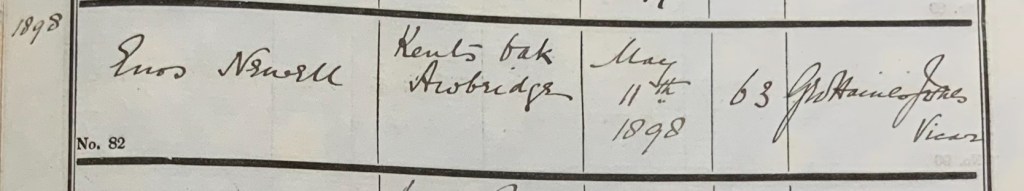 1898
Enos Newell
Kents Oak
Awbridge
May
11th
1898
63
GW Haines Jones
Vicar
No. 82